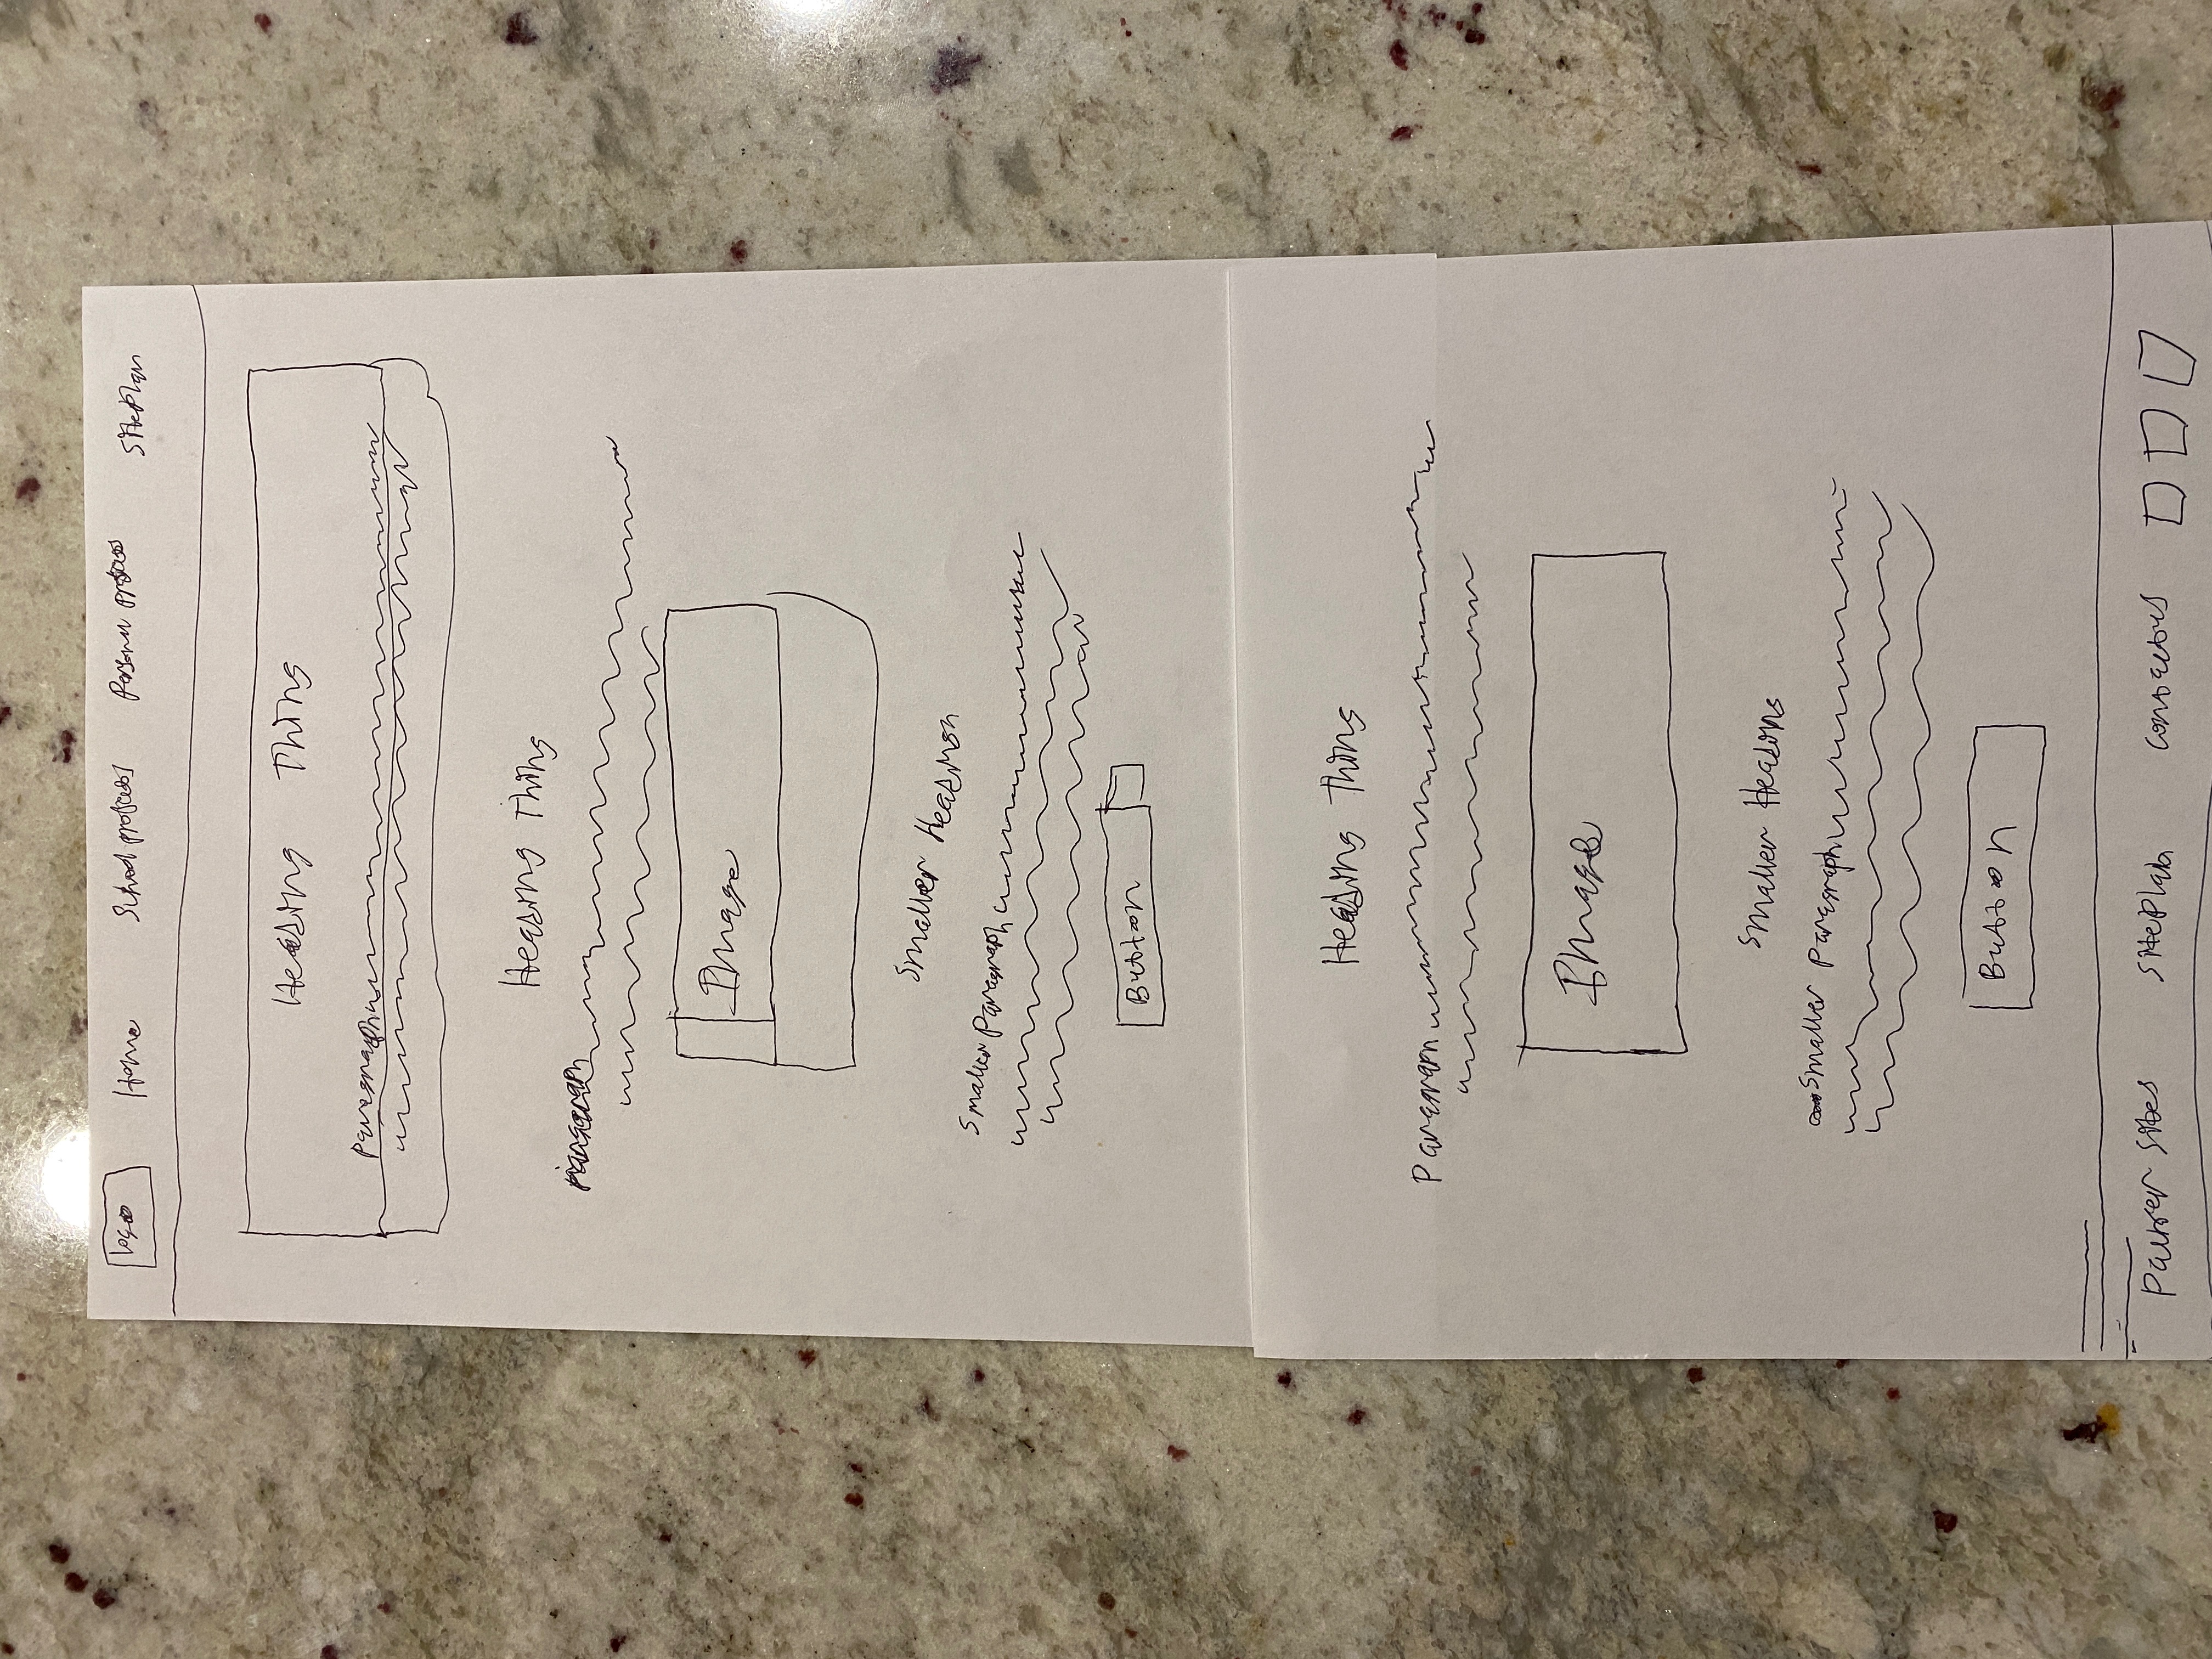 Logo Home School projects Personal projects Site Plan
Heading Thing
Paragraph
Heading Thing
Paragraph
Image
Smaller Heading
Smaller Paragraph
Button
Heading Thing
Paragraph
Image
Smaller Heading
Smaller Paragraph
Button
Partner Sites Site Plan Contact us